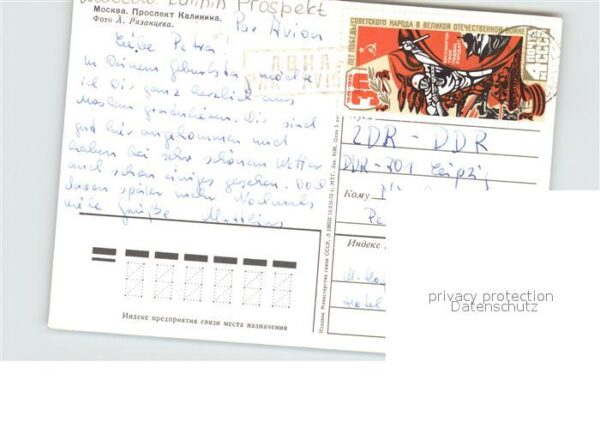 Kalinin Prospekt
Москва. Проспект Калинина.
Фото А. Рязанцева.
Par Avion
Liebe Petra!
zu Deinem Geburtstag möchte
ich Dir ganz herzlich aus
Moskau gratulieren. Wir sind
gut hier angekommen und
haben bei sehr schönem Wetter
auch schon einiges gesehen.
später mehr. Nochmals
viele Grüße
30 ЛЕТ ПОБЕДЫ СОВЕТСКОГО НАРОДА В ВЕЛИКОЙ ОТЕЧЕСТВЕННОЙ ВОЙНЕ
АВИА
PAR AVION
DDR
DDR-701 Leipzig
Кому
Индекс
Индекс предприятия связи места назначения
Издание Министерства связи СССР.
privacy protection
Datenschutz